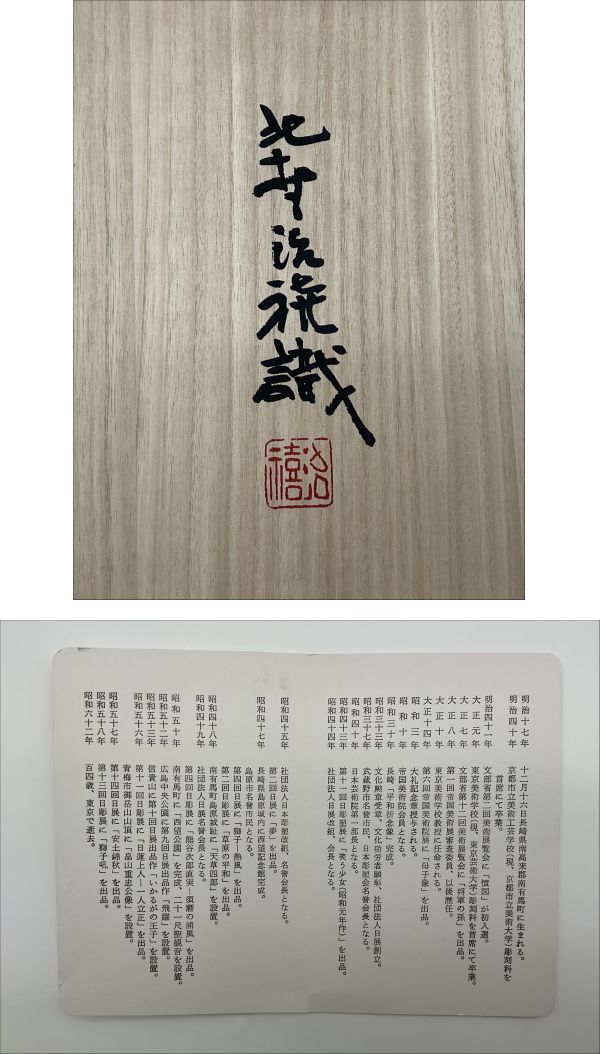 北村治禧識
治禧
明治十七年 十二月十六日長崎県南高来郡南有馬町に生まれる。
明治四十年 京都市立美術工芸学校(現、京都市立美術大学)彫刻科を
首席にて卒業。
明治四十一年 文部省第二回美術展覧会に「憤図」が初入選。
大正元年 東京美術学校(現、東京芸術大学)彫刻科を首席にて卒業。
大正七年 文部省第十二回美術展覧会に「将軍の孫」を出品。
大正八年 第一回帝国美術展審査委員、以後歴任。
大正十年 東京美術学校教授に任命される。
大正十四年 第六回帝国美術院展に「母子像」を出品。
昭和三年 大礼記念章授与される。
昭和十年 帝国美術院会員となる。
昭和三十年 長崎「平和祈念像」完成。
昭和三十三年 文化勲章受章、文化功労者顕彰、社団法人日展創立。
昭和三十七年 武蔵野市名誉市民、日本彫塑会名誉会長となる。
昭和四十年 日本芸術院第一部長となる。
昭和四十三年 第十一回日彫塑展に「笑う少女(昭和元年作)」を出品。
昭和四十四年 社団法人日展改組、会長となる。
昭和四十五年 社団法人日本彫塑改組、名誉会長となる。
第二回日展に「夢」を出品。
昭和四十七年 長崎県島原城内に西望記念館完成。
島原市名誉市民となる。
第四回日展に「獅子の熱風」を出品。
第二回日彫展に「草原の平和」を出品。
昭和四十八年 南有馬町島原城趾に「天草四郎」を設置。
昭和四十九年 社団法人日展名誉会長となる。
第四回日彫展に「熊谷次郎直実―須磨の浦風」を出品。
昭和五十年 南有馬町に「西望公園」を完成、二十一尺聖観音を設置。
昭和五十二年 広島中央公園に第九回日展出品作「飛躍」を設置。
昭和五十三年 信貴山に第十回日展出品作「いかるがの王子」を設置。
第十一回日彫展に「日蓮上人―一人立正」を出品。
昭和五十六年 青梅市御岳山山頂に「畠山重忠公像」を設置。
昭和五十七年 第十四回日展に「安土錦秋」を出品。
昭和五十八年 第十三回日彫展に「獅子吼」を出品。
昭和六十二年 百四歳、東京で逝去。